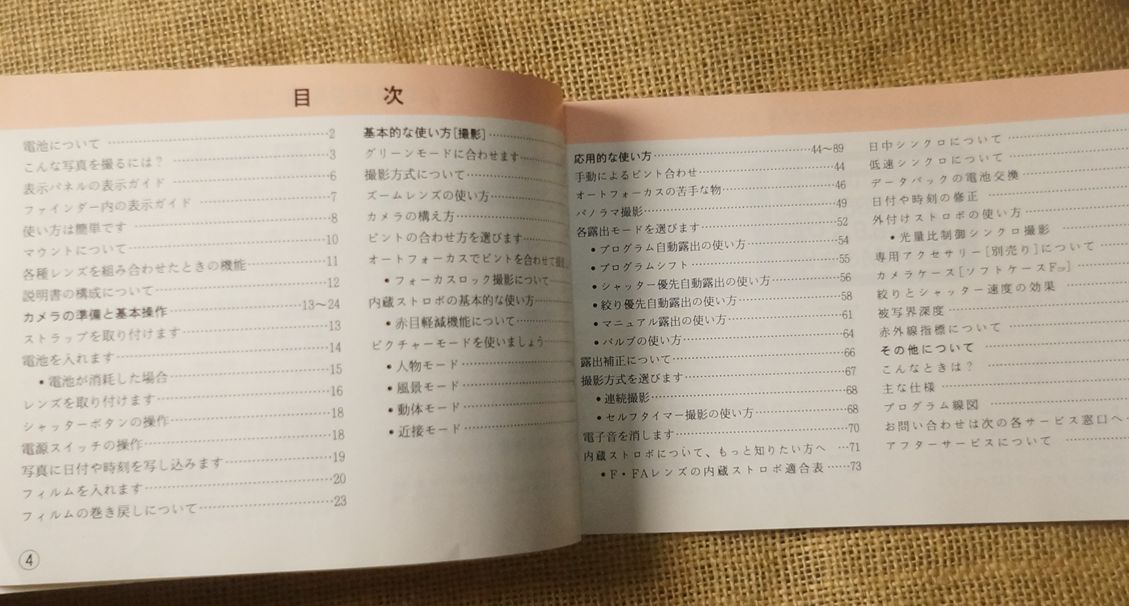 目 次
電池について……2
こんな写真を撮るには？……3
表示パネルの表示ガイド……6
ファインダー内の表示ガイド……7
使い方は簡単です……8
マウントについて……10
各種レンズを組み合わせたときの機能……11
説明書の構成について……12
カメラの準備と基本操作……13～24
ストラップを取り付けます……13
電池を入れます……14
•電池が消耗した場合……15
レンズを取り付けます……16
シャッターボタンの操作……18
電源スイッチの操作……18
写真に日付や時刻を写し込みます……19
フィルムを入れます……20
フィルムの巻き戻しについて……23
④
基本的な使い方[撮影]……
グリーンモードに合わせます……
撮影方式について……
ズームレンズの使い方……
カメラの構え方……
ピントの合わせ方を選びます……
オートフォーカスでピントを合わせて
•フォーカスロック撮影について……
内蔵ストロボの基本的な使い方……
•赤目軽減機能について……
ピクチャーモードを使いましょう……
•人物モード……
•風景モード……
•動体モード……
•近接モード……
応用的な使い方……44～89
手動によるピント合わせ……44
オートフォーカスの苦手な物……46
パノラマ撮影……49
各露出モードを選びます……52
•プログラム自動露出の使い方……54
•プログラムシフト……55
•シャッター優先自動露出の使い方……56
•絞り優先自動露出の使い方……58
•マニュアル露出の使い方……61
•バルブの使い方……64
露出補正について……66
撮影方式を選びます……67
•連続撮影……68
•セルフタイマー撮影の使い方……68
電子音を消します……70
内蔵ストロボについて、もっと知りたい方へ…71
•F・FAレンズの内蔵ストロボ適合表……73
日中シンクロについて……
低速シンクロについて……
データバックの電池交換……
日付や時刻の修正……
外付けストロボの使い方……
•光量比制御シンクロ撮影……
専用アクセサリー[別売り]について……
カメラケース[ソフトケース]……
絞りとシャッター速度の効果……
被写界深度……
赤外線指標について……
その他について……
こんなときは？……
主な仕様……
プログラム線図……
お問い合わせは次の各サービス窓口へ
アフターサービスについて……